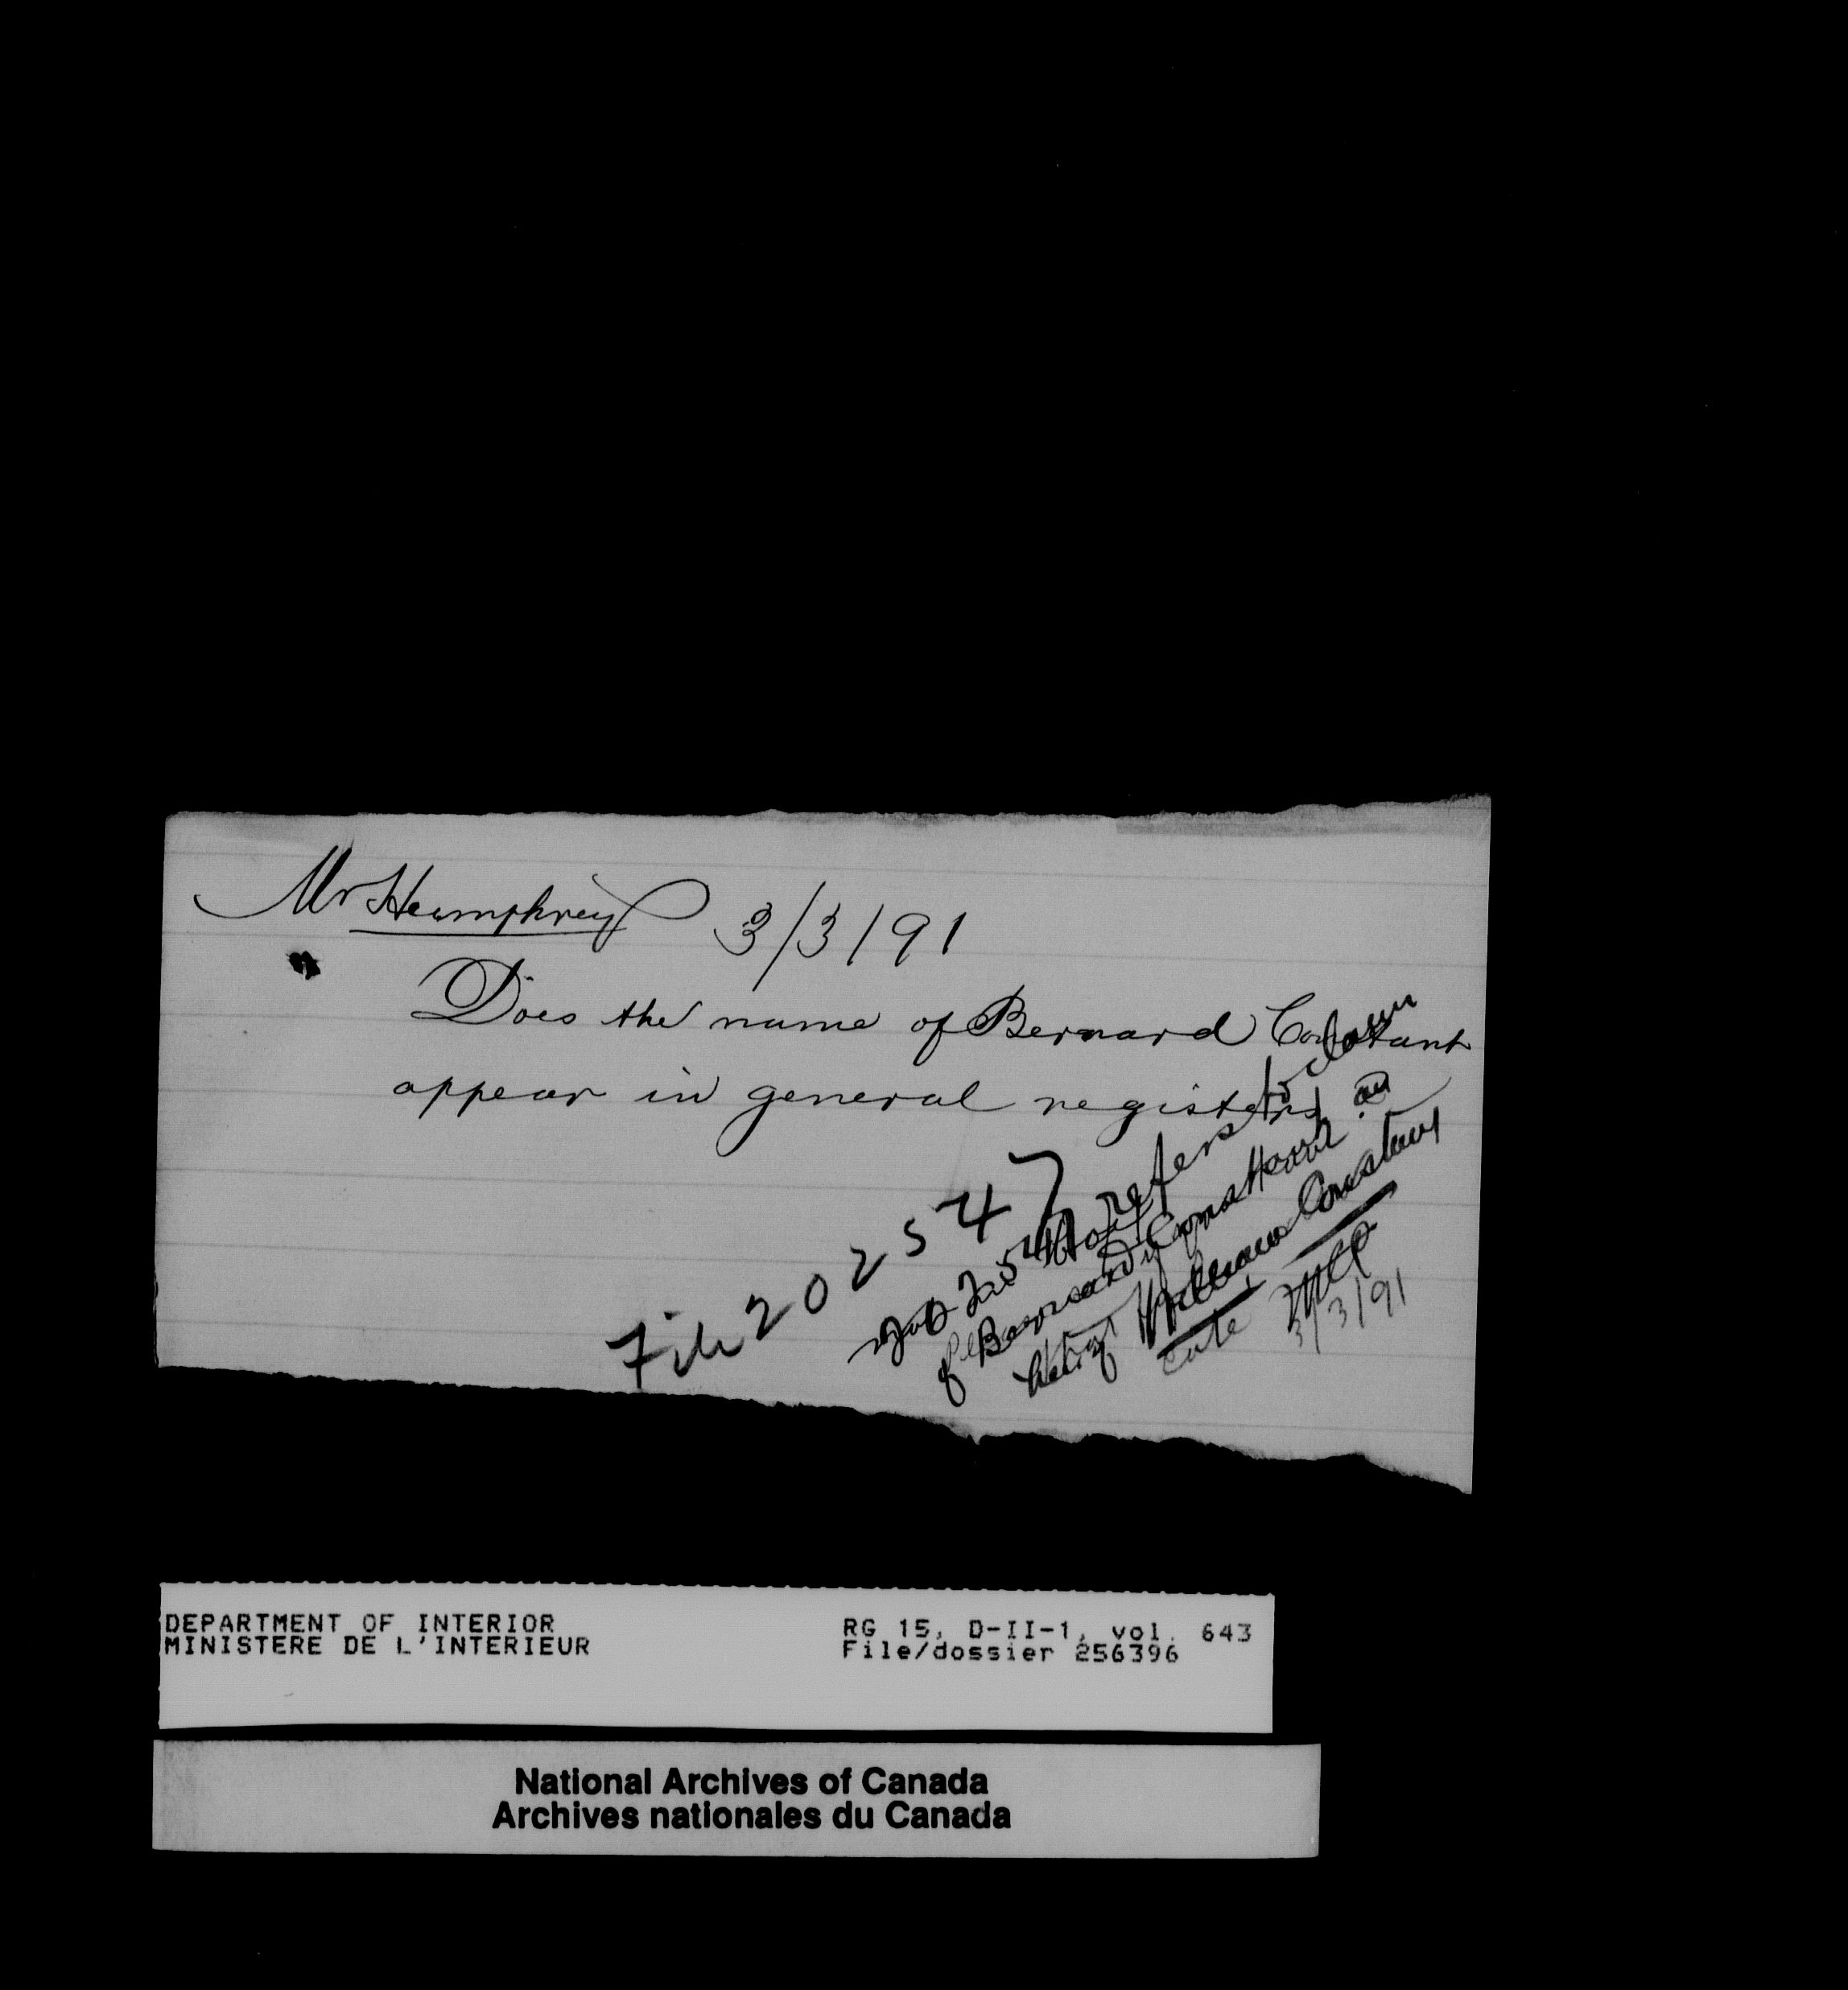 Mr Humphrey 3/3/91
Does the name of Bernard Constant
appear in general registers
File 202547
refers to claim
of Bernard Constant as
heir of William Constant
3/3/91
DEPARTMENT OF INTERIOR
MINISTERE DE L'INTERIEUR
RG 15, D-II-1, vol. 643
File/dossier 256396
National Archives of Canada
Archives nationales du Canada